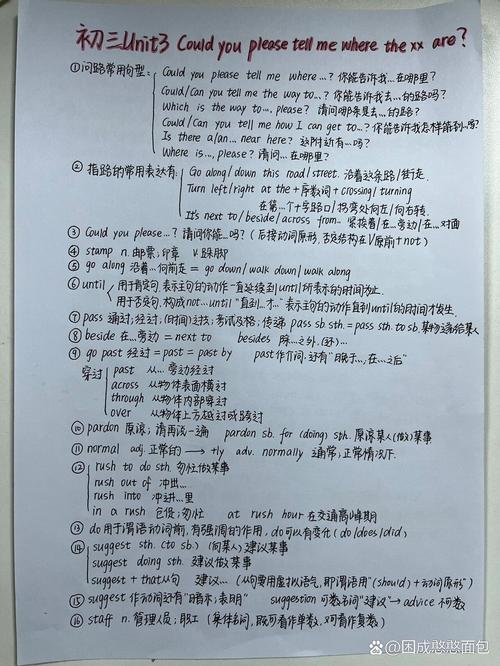 初三Unit3 Could you please tell me where the xx are?
①问路常用句型: Could you please tell me where...? 你能告诉我...在哪里?
Could/Can you tell me the way to...? 你能告诉我去...的路吗?
Which is the way to..., please? 请问哪条是去...的路?
Could/Can you tell me how I can get to...? 你能告诉我怎样能到...吗?
Is there a/an... near here? 这附近有...吗?
Where is..., please? 请问...在哪里?
②指路的常用表达有: Go along/down this road/street. 沿着这条路/街走.
Turn left/right at the+序数词+crossing/turning
在第...个十字路口/拐弯处向左/向右转.
It's next to/beside/across from... 紧挨着/在...旁边/在...对面
③Could you please...? 请问你能...吗? (后接动词原形,否定结构在V原前+not)
④stamp n.邮票;印章 v.跺脚
⑤go along 沿着...向前走=go down/walk down/walk along
⑥until 用于肯定句,表示主句的动作一直延续到until所表示的时间为止.
用于否定句,构成not...until"直到...才..."表示主句的动作直到until的时间才发生.
⑦pass 通过;经过;(时间)过去;考试及格;传递 pass sb sth.=pass sth. to sb.某物递给某人
⑧beside 在...旁边=next to besides 除...之外,(还)...
⑨go past 经过=past=past by past作介词.还有"晚于...,在...之后"
穿过 past 从...旁边经过
across 从物体表面横过
through 从物体内部穿过
over 从物体上方越过或跨过
⑩pardon 原谅;请再说一遍 pardon sb. for (doing) sth. 原谅某人(做)某事
⑪normal adj.正常的→+ly adv. normally 通常;正常情况下.
⑫rush to do sth. 匆忙做某事
rush out of 冲出...
rush into 冲进...里
in a rush 仓促;匆忙 at rush hour 在交通高峰期
⑬do用于谓语动词前,有强调的作用,do可以有变化(do/does/did)
⑭suggest sth. (to sb.) (向某人)建议某事
suggest doing sth. 建议做某事
suggest+that从句 建议...(从句要用虚拟语气,即谓语用"(should)+动词原形")
⑮suggest作动词还有"暗示;表明" suggestion 可数名词"建议"→advice 不可数
⑯staff n.管理人员;职工(集体名词,既可看作单数,又可看作复数)
@困成憨憨面包